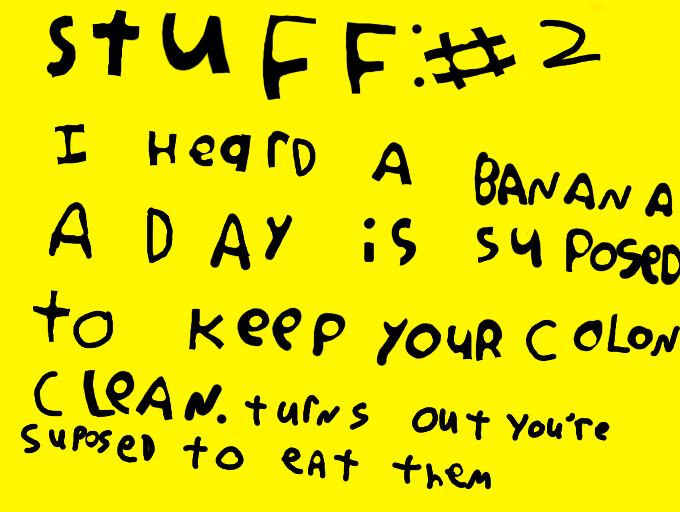 stuFF:#2
I HearD A BANANA
A DAY is suPosED
to KeeP YOUR COLON
CLeAN. turns out You're
suPoseD to eAt them